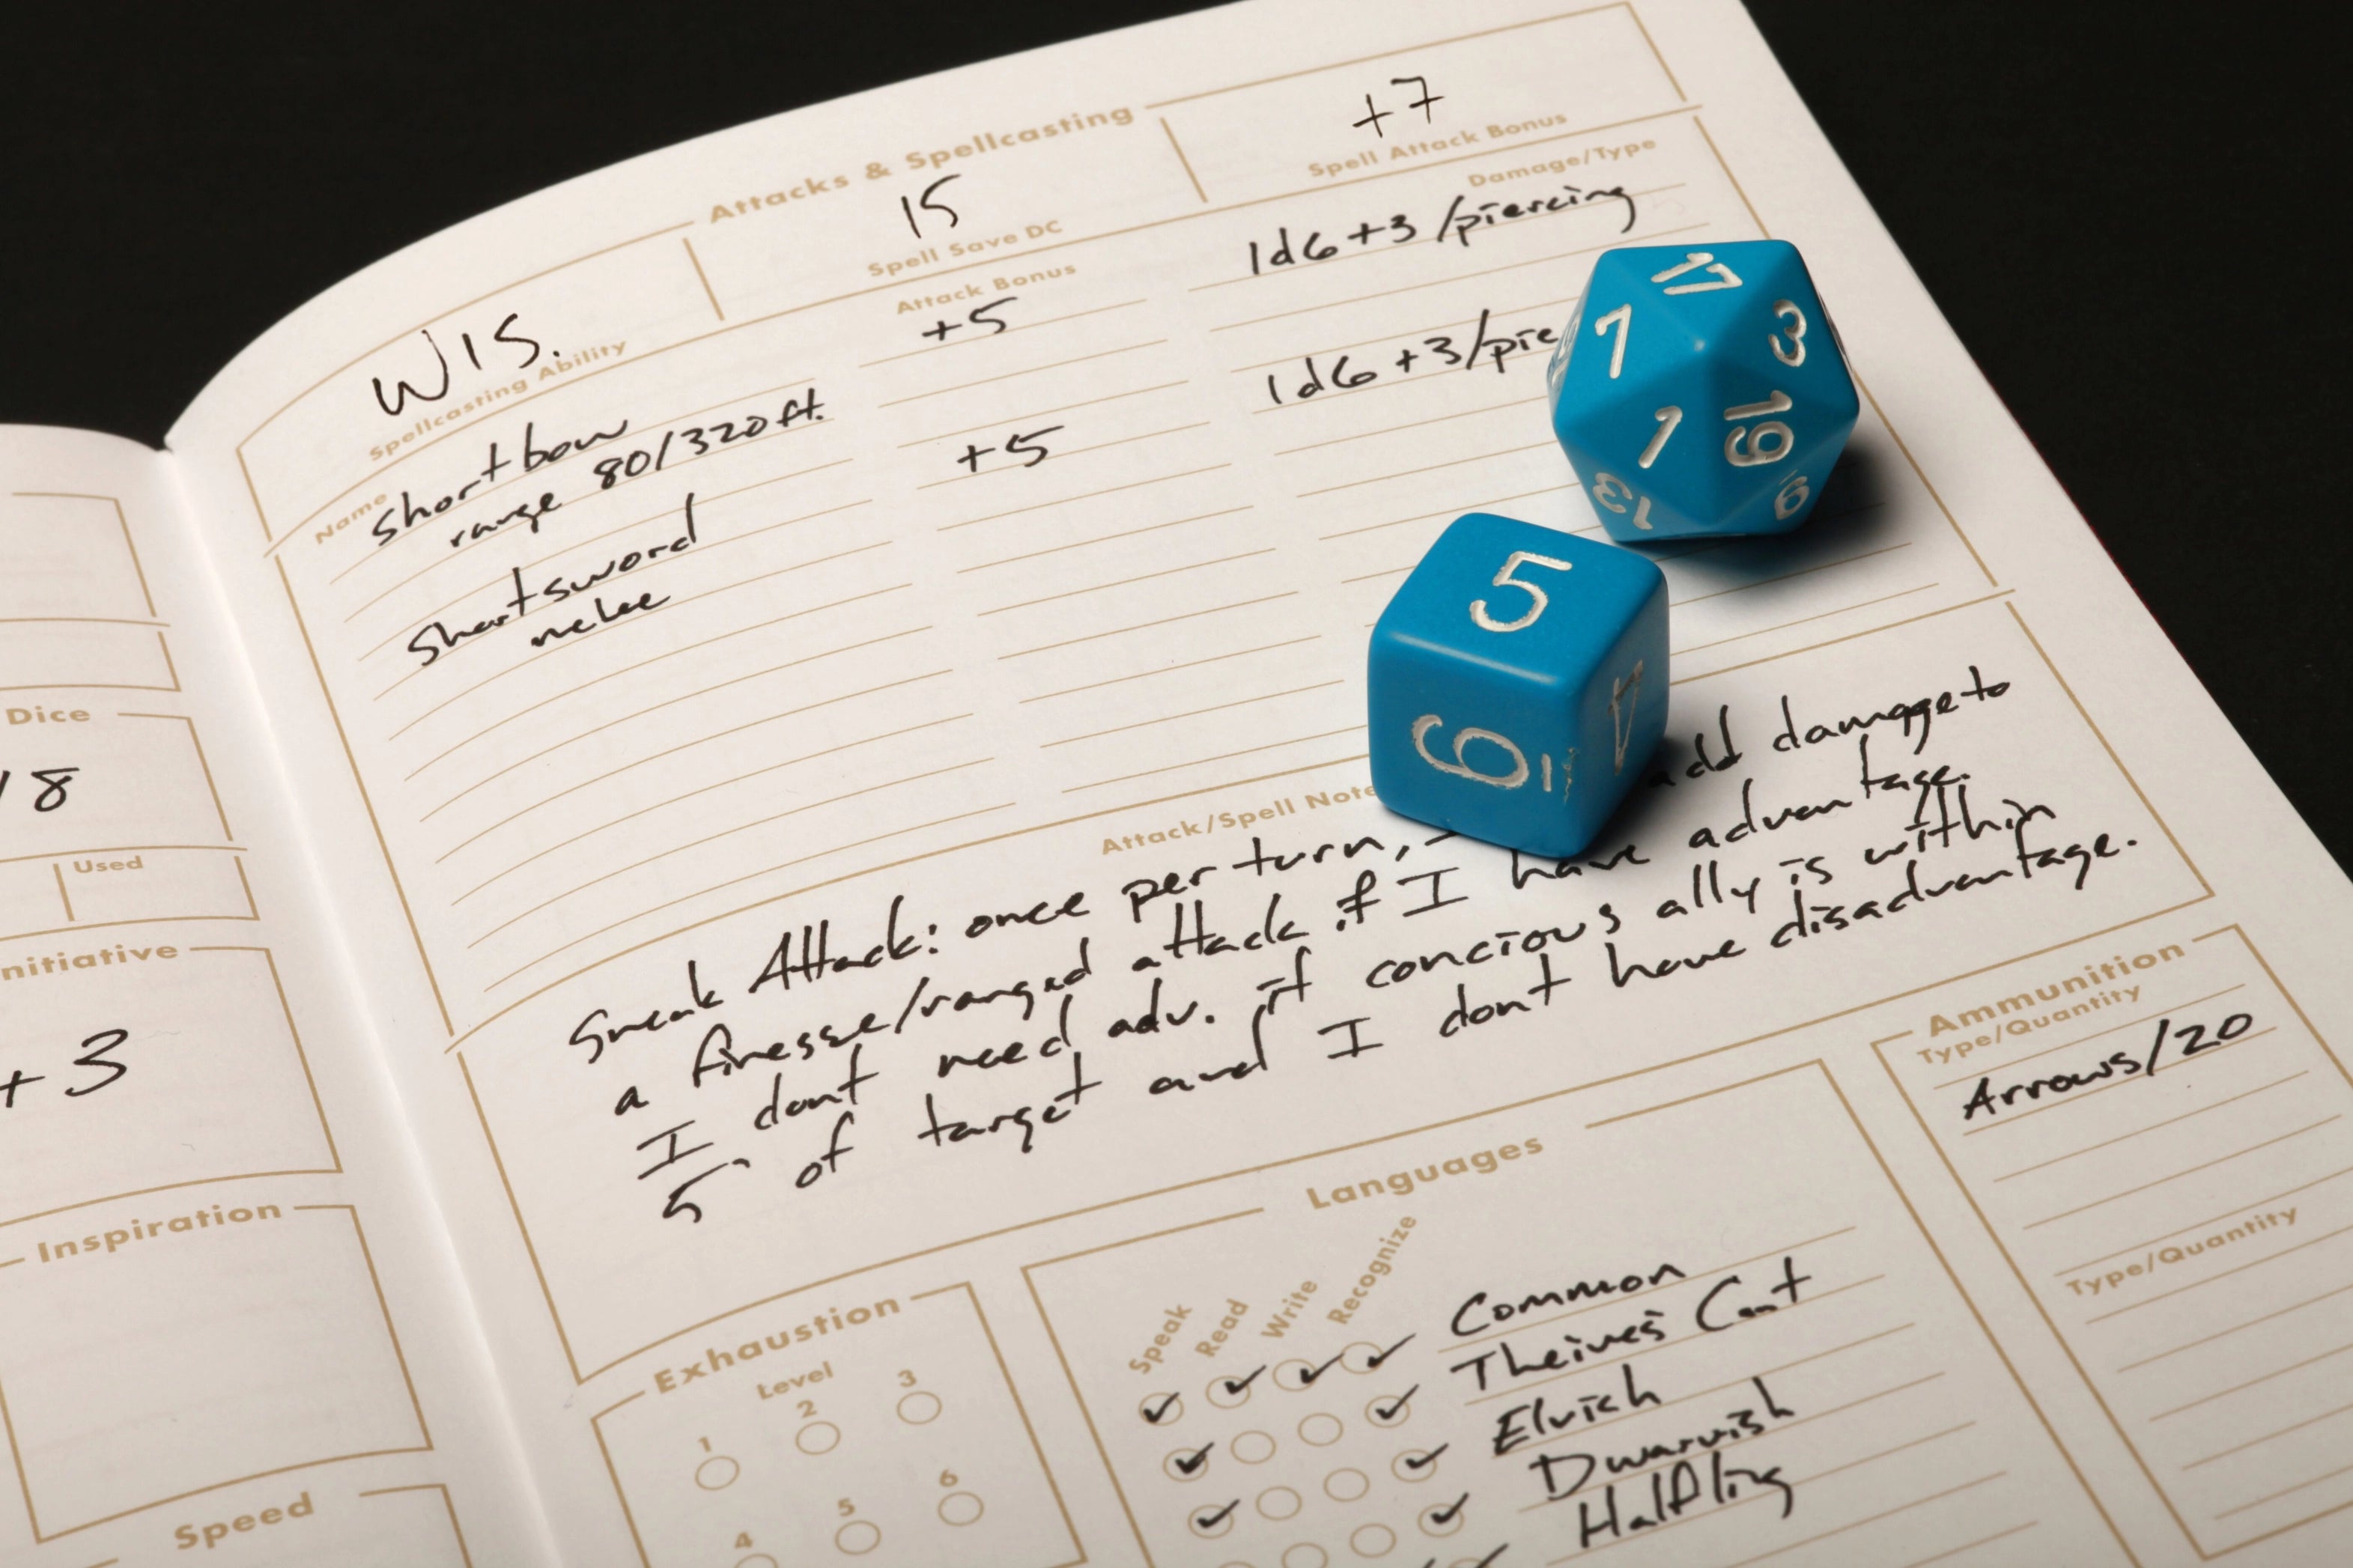 Attacks & Spellcasting
WIS.
Spellcasting Ability
15
Spell Save DC
+7
Spell Attack Bonus
Name
Attack Bonus
Damage/Type
Shortbow
+5
1d6 +3 /piercing
range 80/320 ft.
Shortsword
+5
1d6 +3/pie
melee
17
7
3
1
19
13
9
5
6
4
Attack/Spell Note
Sneak Attack: once per turn, add damage to
a finesse/ranged attack if I have advantage.
I dont need adv. if concious ally is within
5' of target and I dont have disadvantage.
Dice
18
Used
nitiative
+3
Inspiration
Speed
Exhaustion
Level
1
2
3
4
5
6
Languages
Speak
Read
Write
Recognize
Common
Theives Cant
Elvish
Dwarvish
Halfling
Ammunition
Type/Quantity
Arrows/20
Type/Quantity